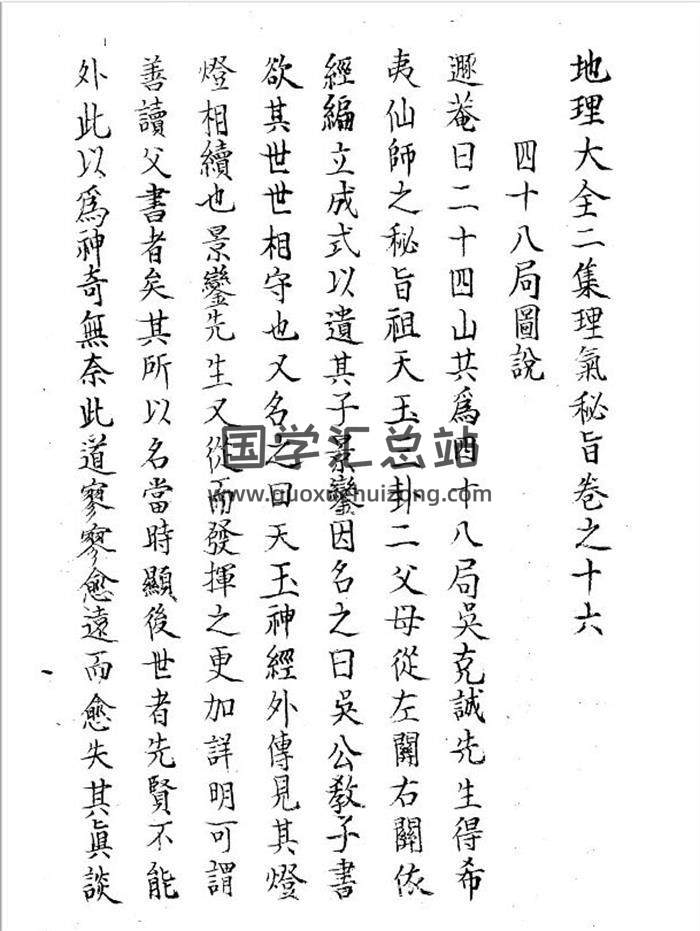 地理大全二集理氣秘旨卷之十六
四十八局圖說
遯菴曰二十四山共爲四十八局吳克誠先生得希
夷仙師之秘旨祖天玉三卦二父母從左關右關依
經編立成式以遺其子景鸞因名之曰吳公教子書
欲其世世相守也又名之曰天玉神經外傳見其燈
燈相續也景鸞先生又從而發揮之更加詳明可謂
善讀父書者矣其所以名當時顯後世者先賢不能
外此以爲神奇無奈此道寥寥愈遠而愈失其眞談
国学汇总站
www.guoxuehuizong.com